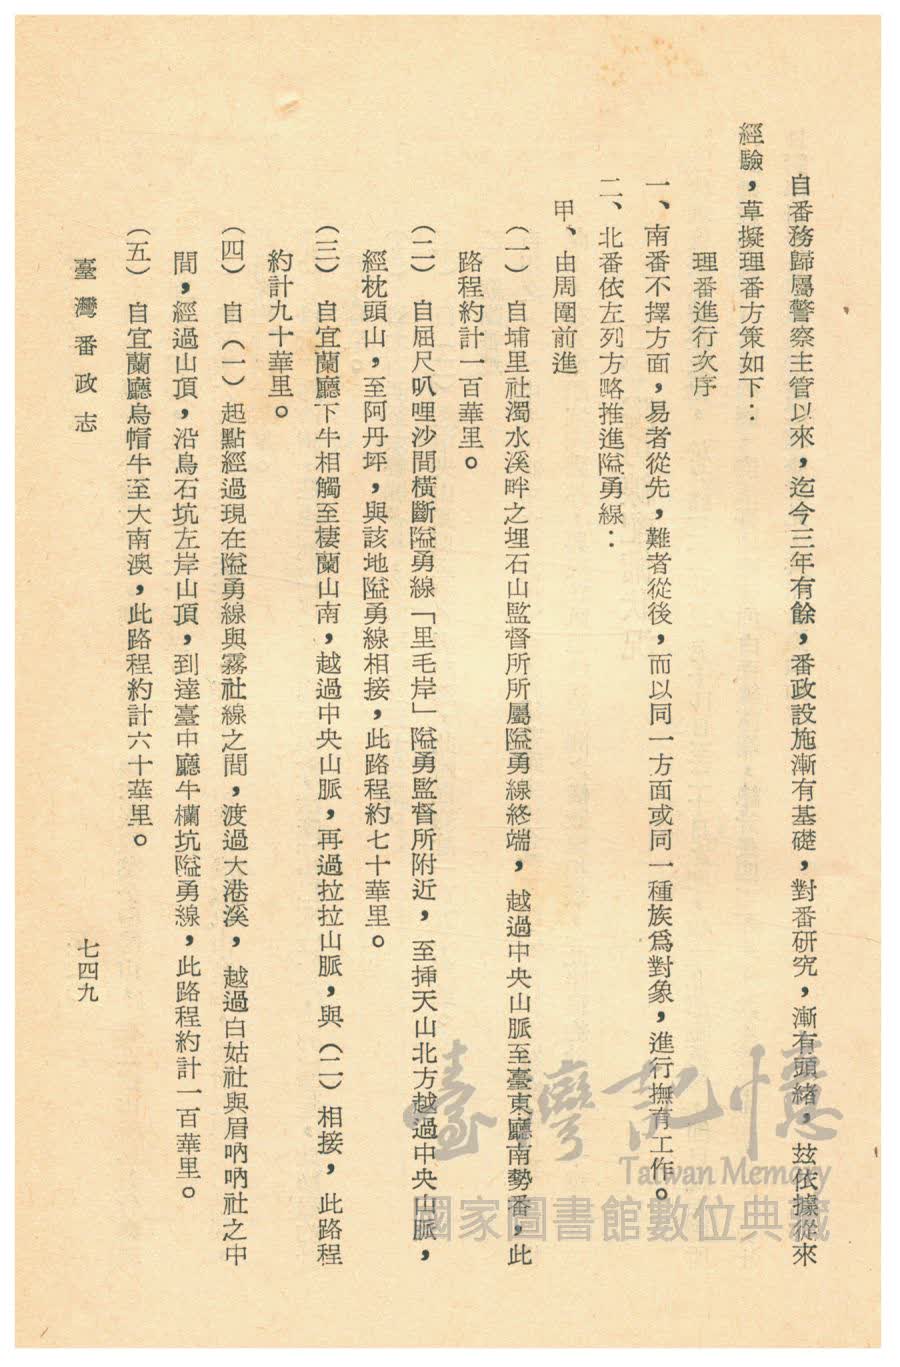 自番務歸屬警察主管以來，迄今三年有餘，番政設施漸有基礎，對番研究，漸有頭緒，玆依據從來
經驗，草擬理番方策如下：
理番進行次序
一、南番不擇方面，易者從先，難者從後，而以同一方面或同一種族爲對象，進行撫育工作。
二、北番依左列方略推進隘勇線：
甲、由周圍前進
（一）自埔里社濁水溪畔之埋石山監督所所屬隘勇線終端，越過中央山脈至臺東廳南勢番，此
路程約計一百華里。
（二）自屈尺叭哩沙間橫斷隘勇線「里毛岸」隘勇監督所附近，至揷天山北方越過中央山脈，
經枕頭山，至阿丹坪，與該地隘勇線相接，此路程約七十華里。
（三）自宜蘭廳下牛相觸至棲蘭山南，越過中央山脈，再過拉拉山脈，與（二）相接，此路程
約計九十華里。
（四）自（一）起點經過現在隘勇線與霧社線之間，渡過大港溪，越過白姑社與眉吶吶社之中
間，經過山頂，沿鳥石坑左岸山頂，到達臺中廳牛欄坑隘勇線，此路程約計一百華里。
（五）自宜蘭廳烏帽牛至大南澳，此路程約計六十華里。
臺灣番政志
七四九
臺灣記憶
Taiwan Memory
國家圖書館數位典藏